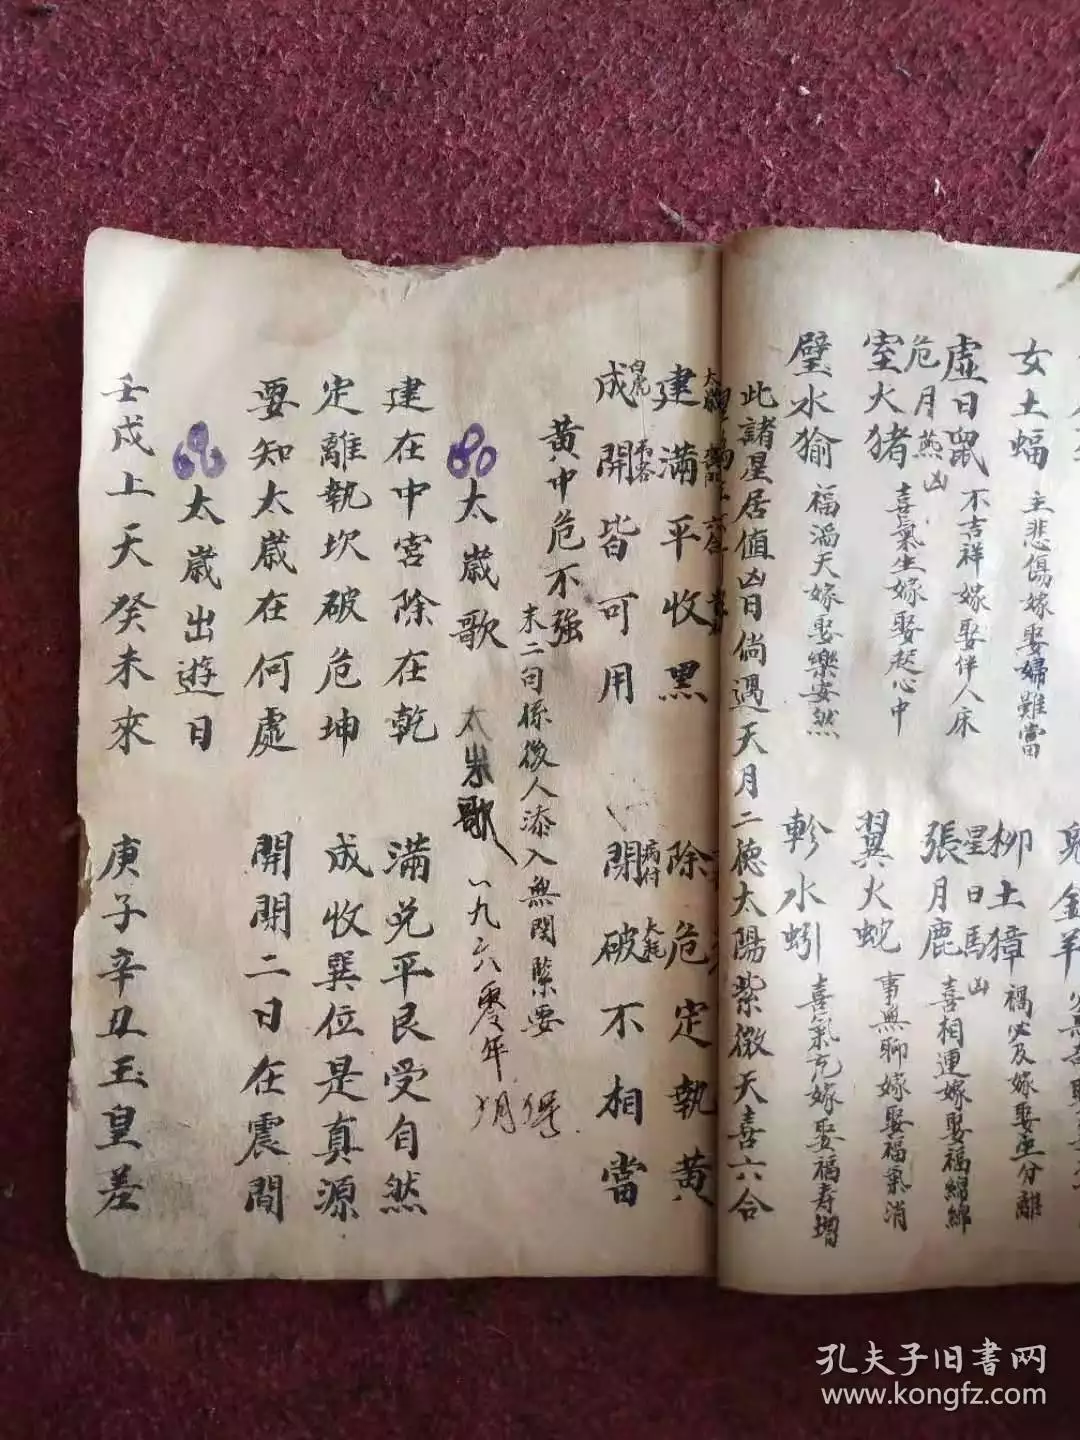 女土蝠 主悲傷嫁娶婦難當
虛日鼠 不吉祥嫁娶伴人床
危月燕凶
室火猪 喜氣生嫁娶稔心中
壁水㺄 福滔天嫁娶樂安然
柳土獐 禍必及嫁娶主分離
星日馬凶
張月鹿 喜相連嫁娶福綿綿
翼火蛇 事無聊嫁娶福氣消
軫水蚓 喜氣冗嫁娶福寿增
此諸星居值凶日倘遇天月二德太陽紫微天喜六合
建滿平收黑 除危定執黄
成開皆可用 閉破不相當
白虎
病符
大耗
黄中危不強
末二句係後人添入無関緊要
太歲歌
太岁歌
一九六零年 月
建在中宮除在乾 滿兌平艮受自然
定離執坎破危坤 成收巽位是真源
要知太歲在何處 開閉二日在震間
太歲出遊日
壬戌上天癸未來 庚子辛丑玉皇差
孔夫子旧書网
www.kongfz.com